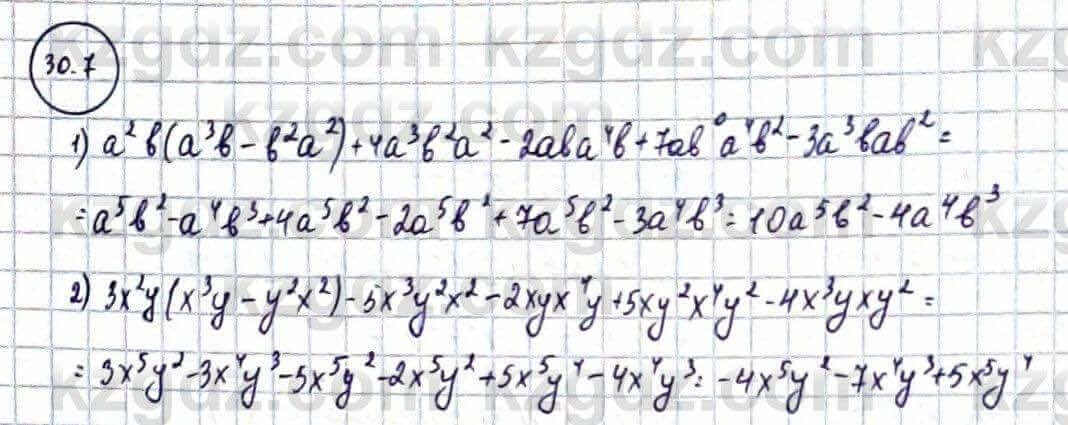 kzgdz.com
30.7
1) a²b(a³b - b²a²) + 4a³b²a² - 2aba⁴b + 7ab⁰a⁴b² - 3a³bab² =
= a⁵b² - a⁴b³ + 4a⁵b² - 2a⁵b² + 7a⁵b² - 3a⁴b³ = 10a⁵b² - 4a⁴b³
2) 3x²y(x³y - y²x²) - 5x³y²x² - 2xyx⁴y + 5xy²x⁴y² - 4x³yxy² =
= 3x⁵y² - 3x⁴y³ - 5x⁵y² - 2x⁵y² + 5x⁵y⁴ - 4x⁴y³ = -4x⁵y² - 7x⁴y³ + 5x⁵y⁴